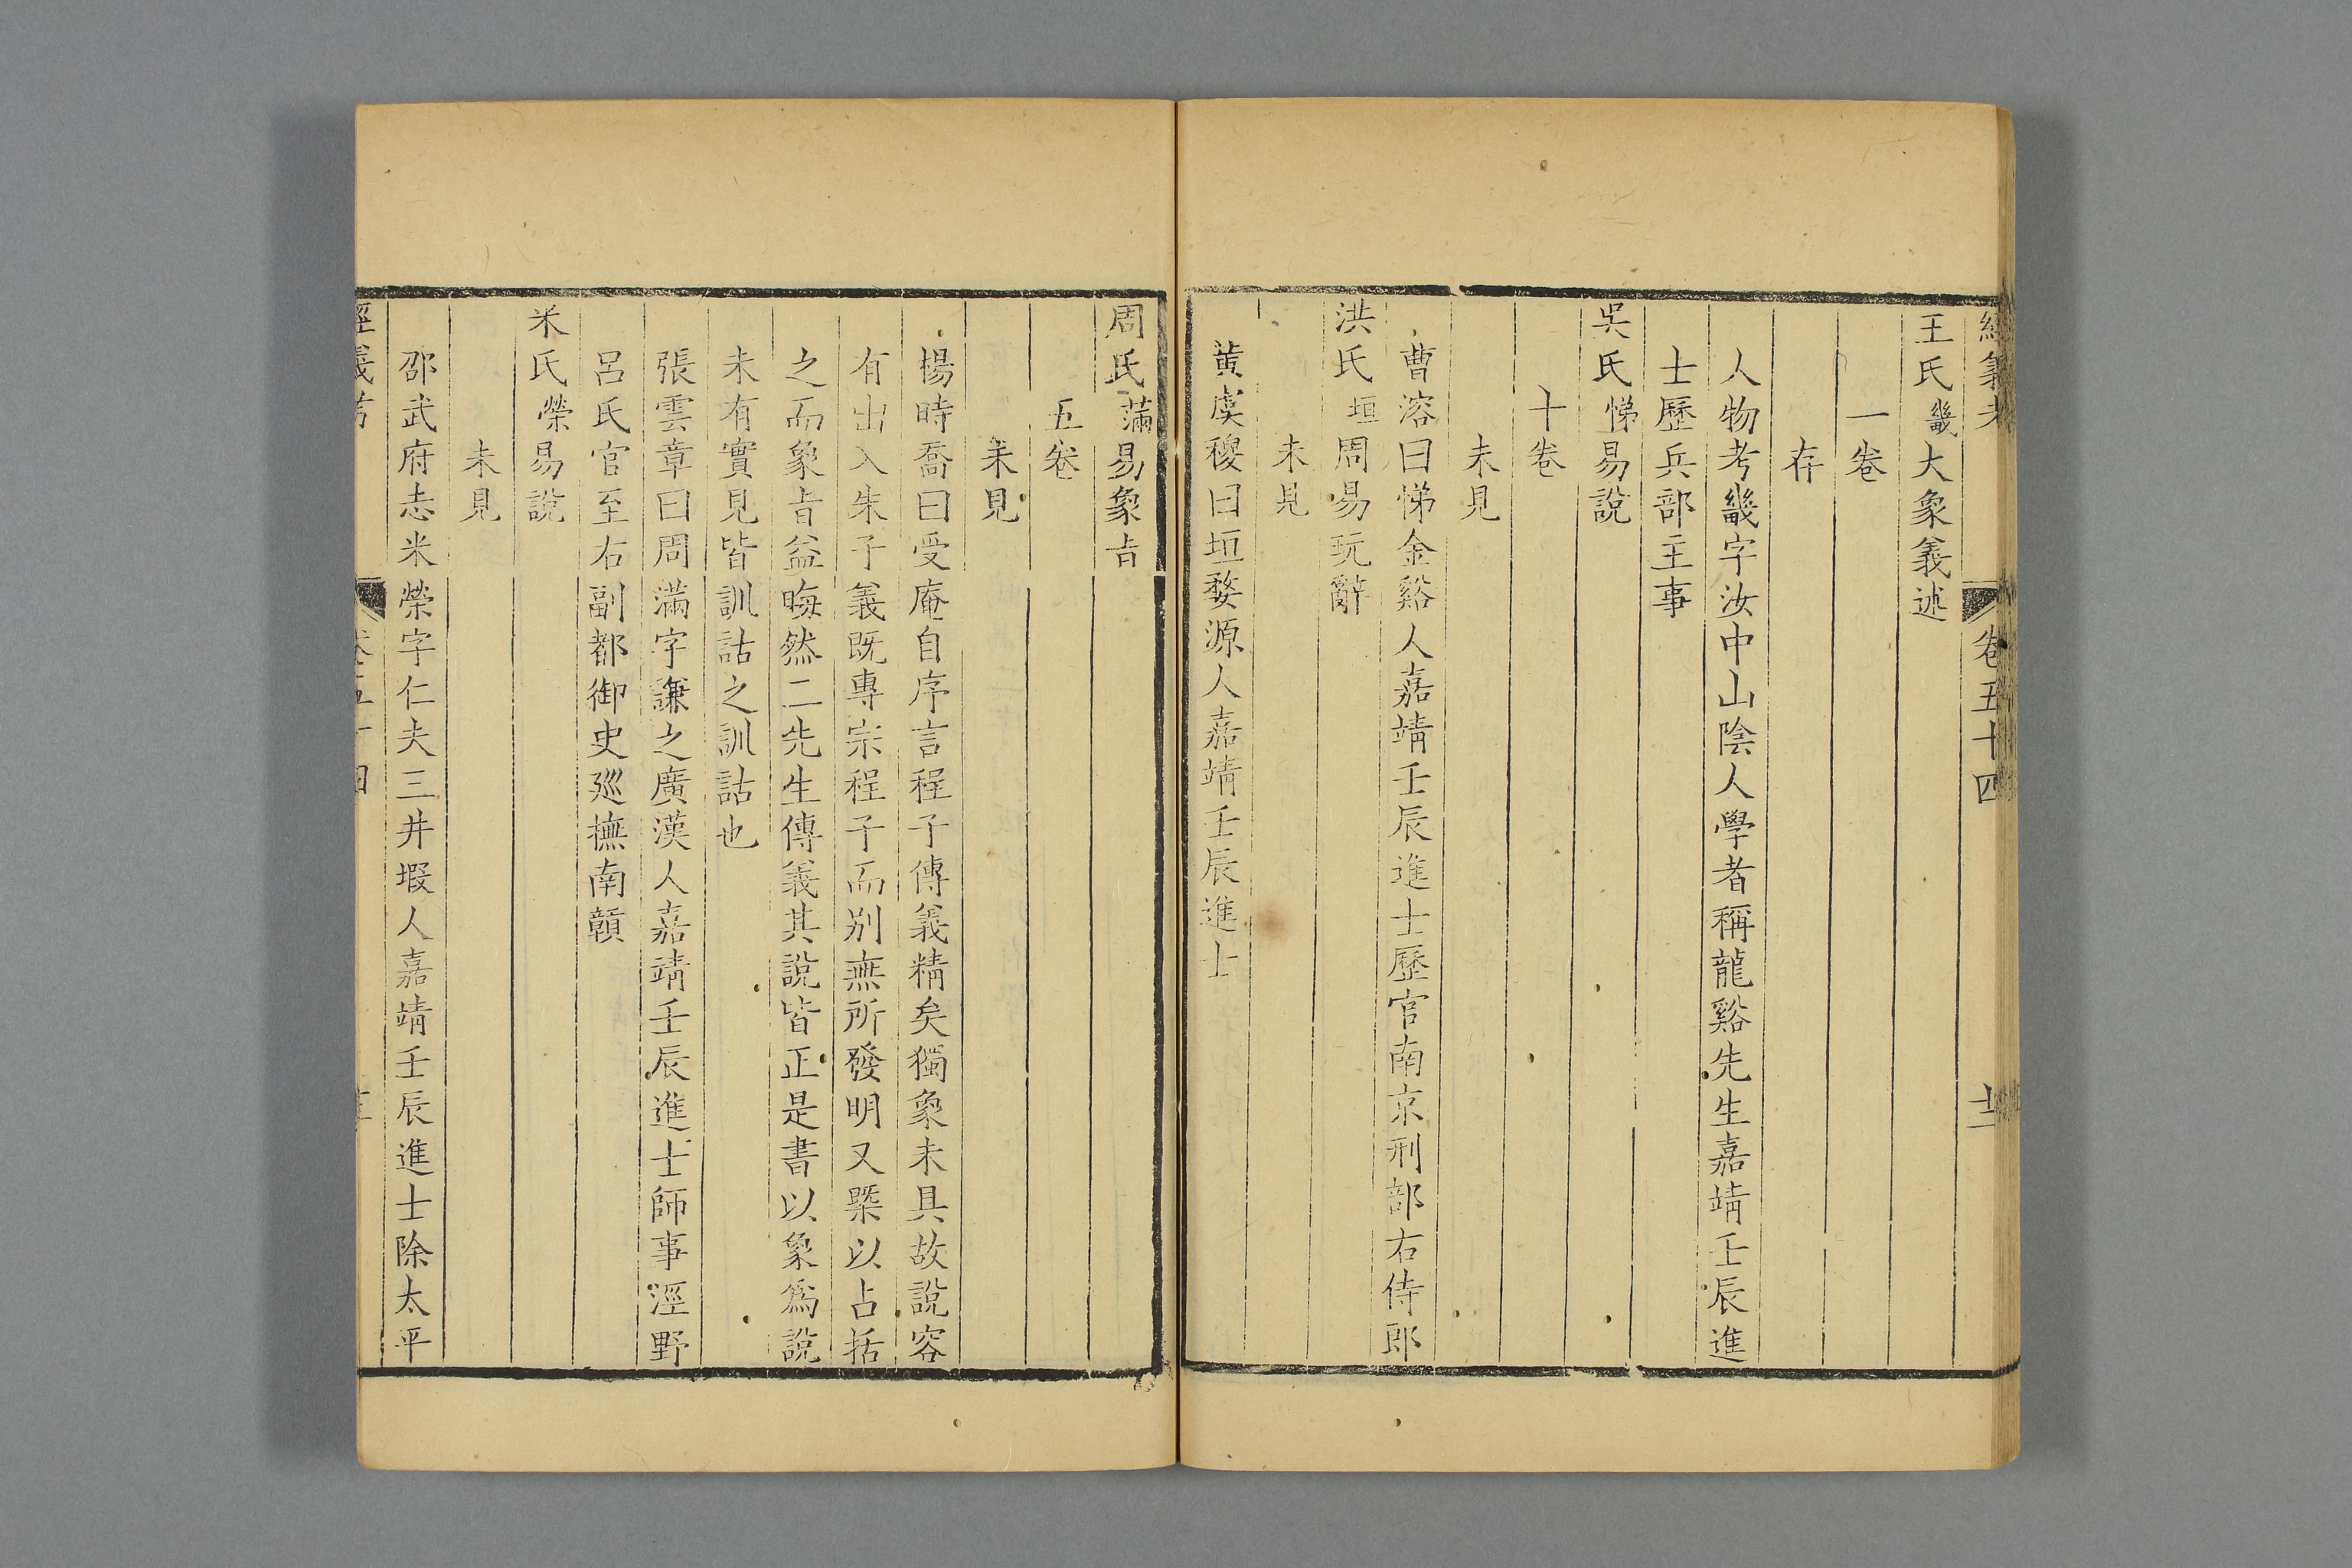 經義考 卷五十四 十二
王氏畿大象義述
一卷
存
人物考畿字汝中山陰人學者稱龍谿先生嘉靖壬辰進
士歷兵部主事
吳氏悌易說
十卷
未見
曹溶曰悌金谿人嘉靖壬辰進士歷官南京刑部右侍郎
洪氏垣周易玩辭
未見
黃虞稷曰垣婺源人嘉靖壬辰進士
周氏滿易象旨
五卷
未見
楊時喬曰受庵自序言程子傳義精矣獨象未具故說容
有出入朱子義既專宗程子而別無所發明又槩以占括
之而象旨益晦然二先生傳義其說皆正是書以象爲說
未有實見皆訓詁之訓詁也
張雲章曰周滿字謙之廣漢人嘉靖壬辰進士師事涇野
呂氏官至右副都御史廵撫南贛
米氏榮易說
未見
邵武府志米榮字仁夫三井塅人嘉靖壬辰進士除太平
經義考 卷五十四